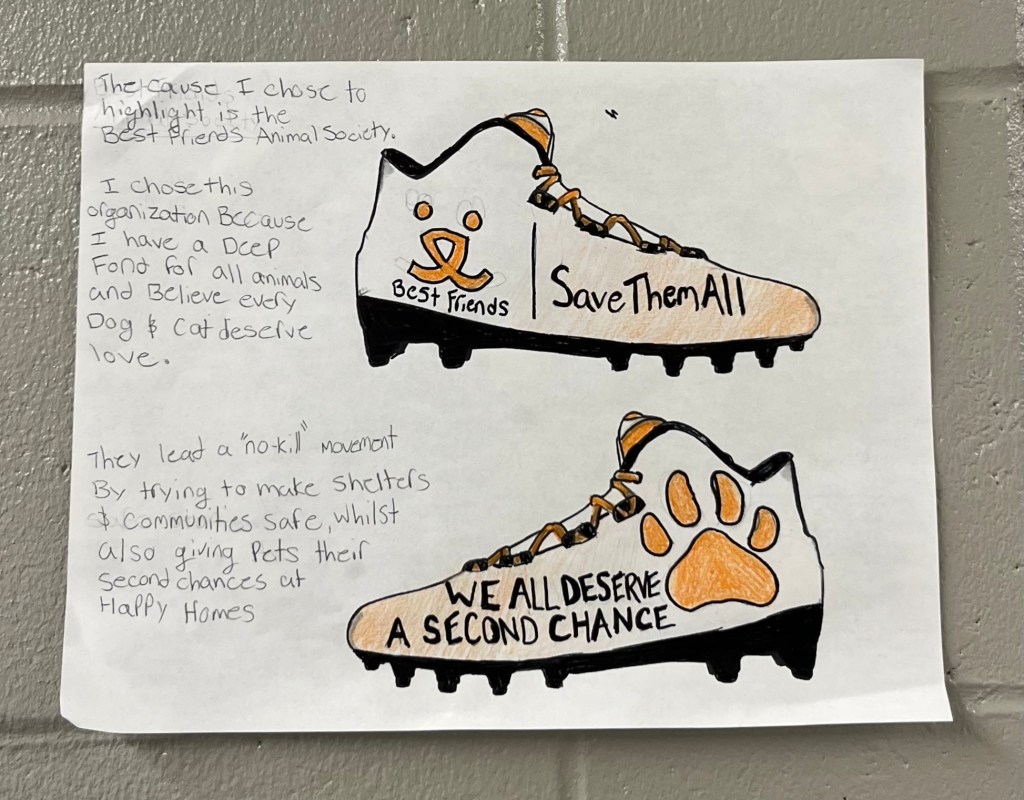 The cause I chose to
highlight is the
Best Friends Animal Society.
I chose this
organization Because
I have a Deep
Fond for all animals
and Believe every
Dog & Cat deserve
love.
They lead a "no-kill" movement
By trying to make shelters
& communities safe, whilst
also giving Pets their
second chances at
Happy Homes
Best Friends
Save Them All
WE ALL DESERVE
A SECOND CHANCE